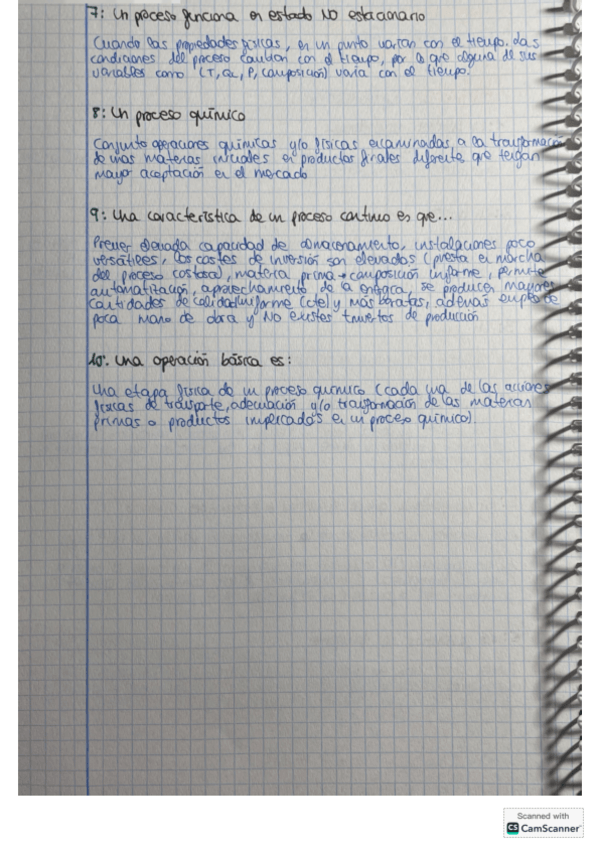 7: Un proceso funciona en estado NO estacionario
Cuando las propiedades físicas, en un punto varían con el tiempo. Las
condiciones del proceso cambian con el tiempo, por lo que alguna de sus
variables como (T, Q, P, composición) varía con el tiempo.
8: Un proceso químico
Conjunto operaciones químicas y/o físicas, encaminadas, a la transformación
de unas materias iniciales en productos finales diferente, que tengan
mayor aceptación en el mercado
9: Una característica de un proceso continuo es que...
Prever elevada capacidad de almacenamiento, instalaciones poco
versátiles, los costes de inversión son elevados (puesta en marcha
del proceso costosa), materia prima → composición uniforme, permite
automatización, aprovechamiento de la energía, se producen mayores
cantidades de calidad uniforme (cte) y más baratas, además emplea de
poca mano de obra y NO existes tmuertos de producción
10: una operación básica es:
Una etapa física de un proceso químico (cada una de las acciones
físicas de transporte, adecuación y/o transformación de las materias
primas o productos implicados en un proceso químico).
Scanned with
CS CamScanner